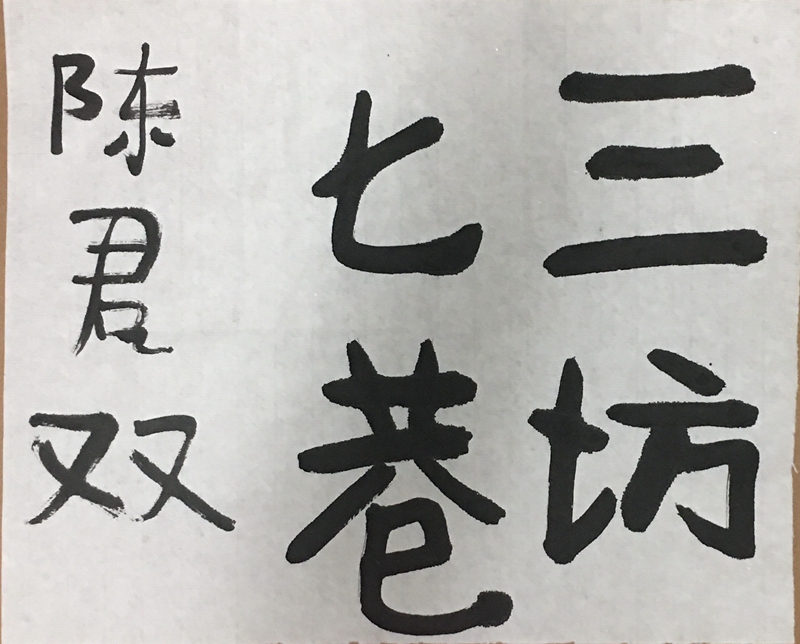 三坊
七巷
陈君双